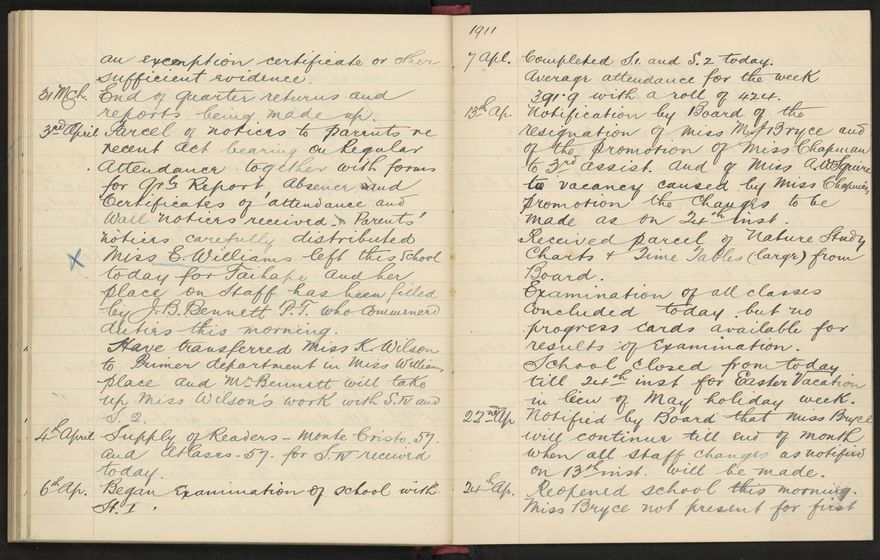 an exemption certificate or other
sufficient evidence.
31 Mch. End of quarter returns and
reports being made up.
3rd April Parcel of notices to parents re
recent Act bearing on Regular
Attendance together with forms
for Qrs Report, Absence and
Certificates of attendance and
Wall notices received. Parents'
notices carefully distributed
X Miss E. Williams left this School
today for Taihape and her
place on Staff has been filled
by J.B. Bennett P.T. who commenced
duties this morning.
Have transferred Miss K. Wilson
to Primer department in Miss Williams
place and Mr Bennett will take
up Miss Wilson's work with S.IV and
S. 2.
4th April Supply of Readers - Monte Cristo. 57.
and Atlases. 57. for S.IV received
today.
6th Ap. Began Examination of school with
1911
7 Apl. Completed S1. and S.2 today.
Average attendance for the week
391.9 with a roll of 424.
13th Ap. Notification by Board of the
resignation of Miss Bryce and
of the promotion of Miss Chapman
to 3rd assist. and of Miss A. Squire
to vacancy caused by Miss Chapman's
promotion the changes to be
made as on 24th inst.
Received parcel of Nature Study
Charts & Time Tables (large) from
Board.
Examination of all classes
concluded today but no
progress cards available for
results of Examination.
School closed from today
till 24th inst for Easter Vacation
in lieu of May holiday week.
22nd Ap Notified by Board that Miss Bryce
will continue till end of month
when all staff changes as notified
on 13th inst. will be made.
24th Ap. Reopened school this morning.
Miss Bryce not present for first